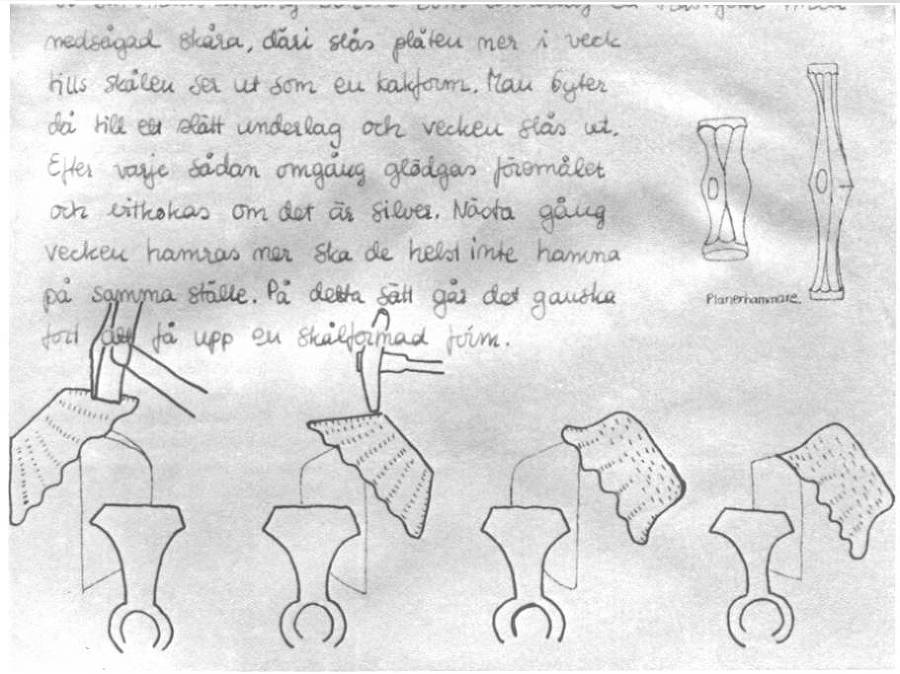 nedsågad skåra, däri slås plåten mer i veck
tills skålen ser ut som en kakform. Man byter
då till ett slätt underlag och vecken slås ut.
Efter varje sådan omgång glödgas föremålet
och vitkokas om det är silver. Nästa gång
vecken hamras mer ska de helst inte hamna
på samma ställe. På detta sätt går det ganska
fort att få upp en skålformad form.
Planerhammare.